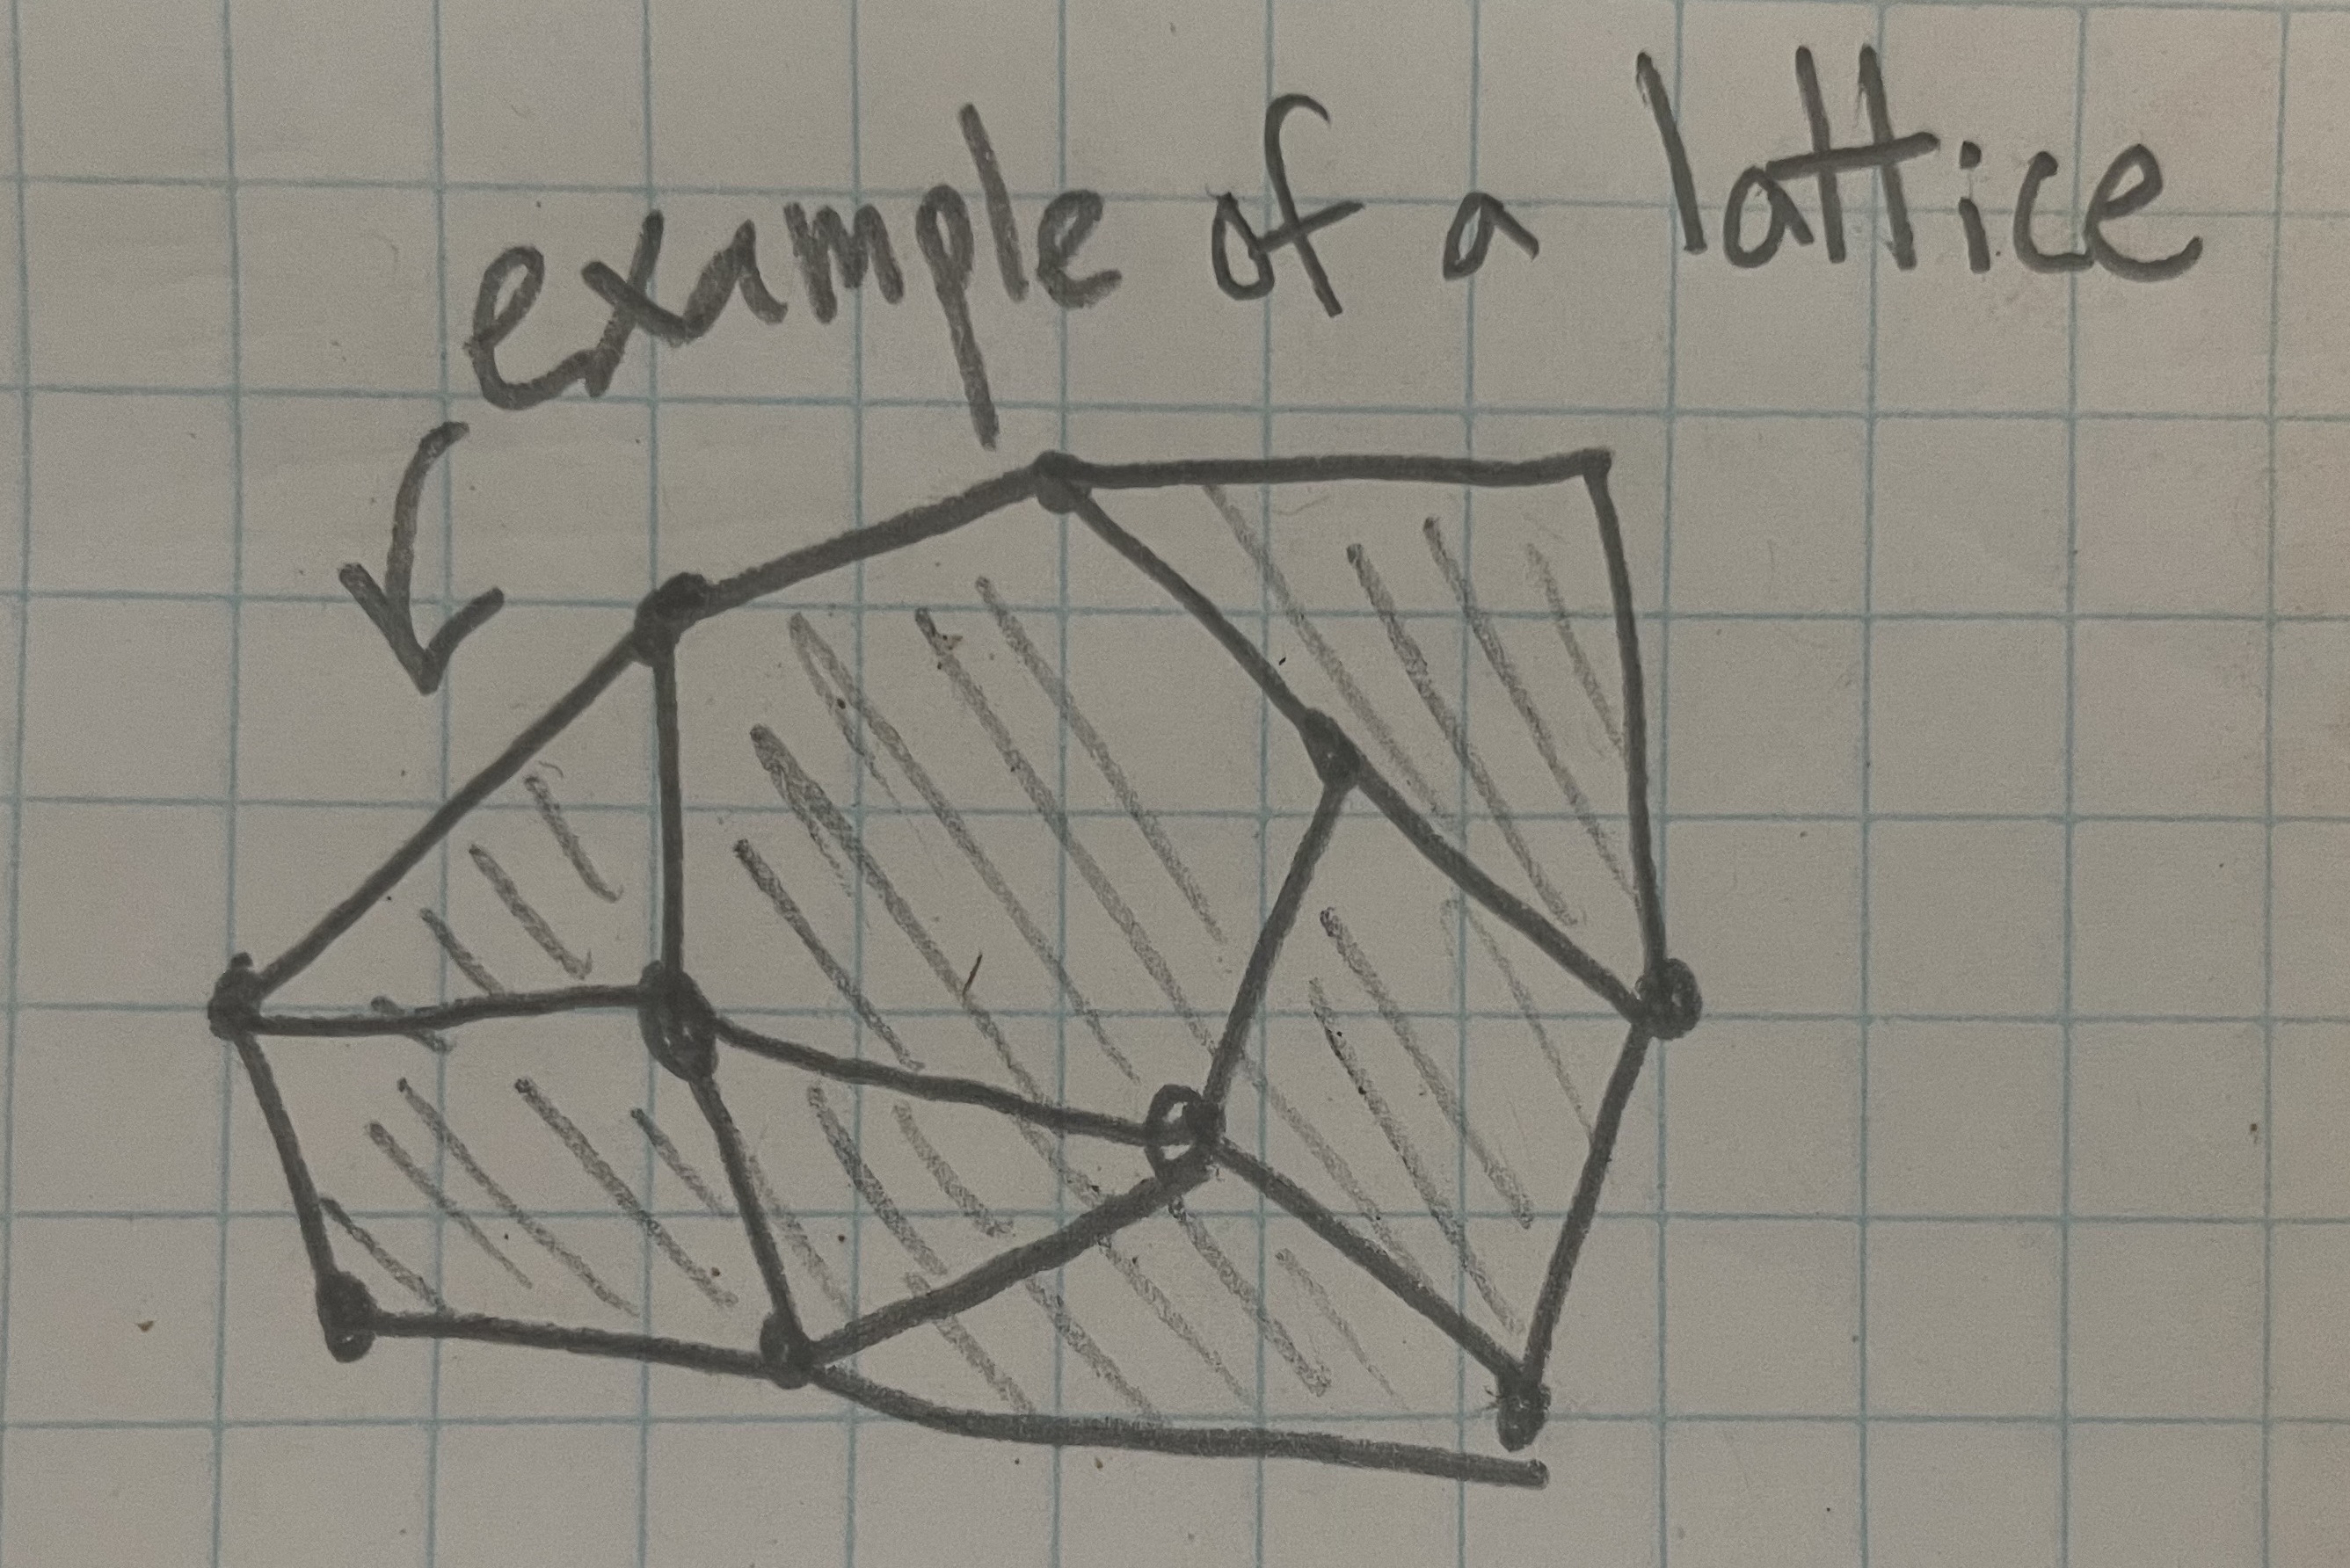 example of a lattice